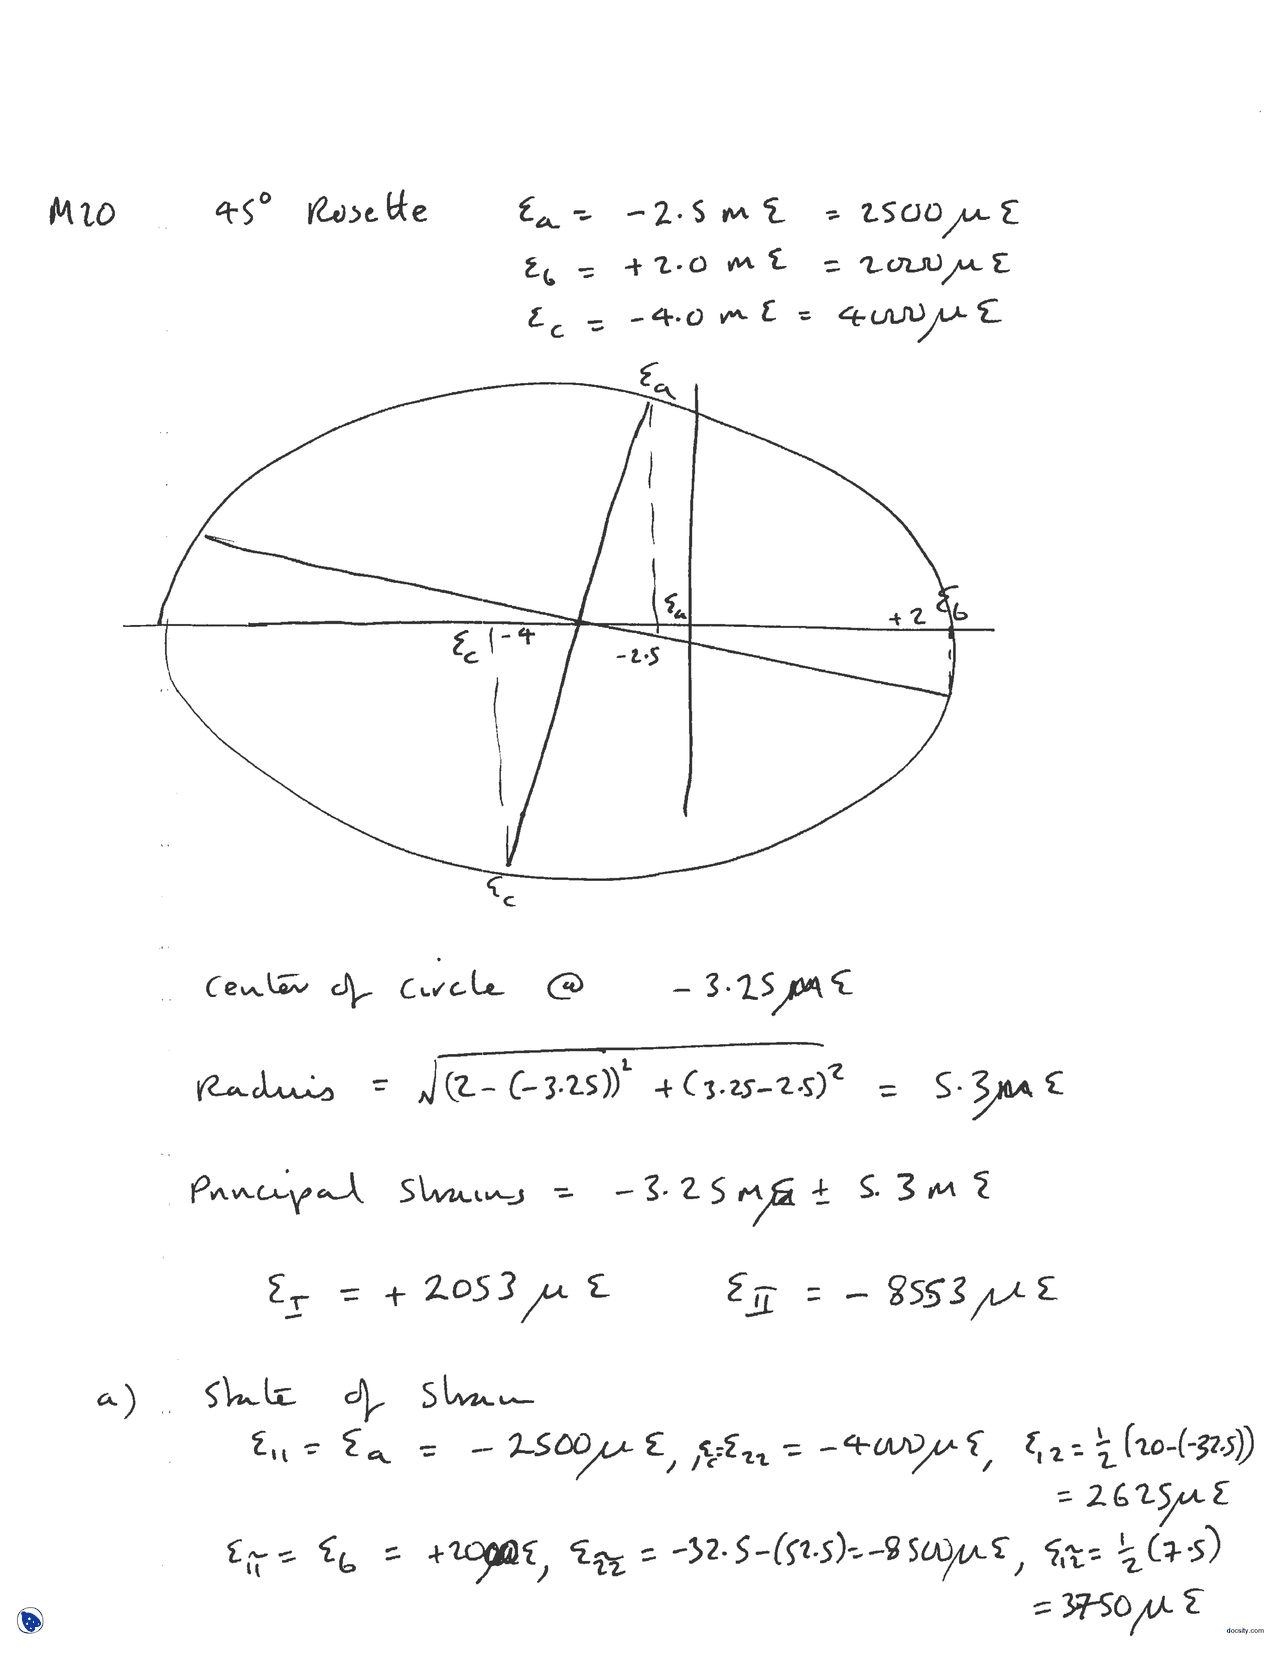 M20 45° Rosette εa = -2.5 m ε = 2500 μ ε
εb = +2.0 m ε = 2000 μ ε
εc = -4.0 m ε = 4000 μ ε
εa
εa
+2 εb
εc -4
-2.5
εc
Center of circle @ -3.25 m ε
Radius = √(2-(-3.25))² + (3.25-2.5)² = 5.3 m ε
Principal strains = -3.25 m ε ± 5.3 m ε
εI = + 2053 μ ε εII = - 8553 μ ε
a) State of strain
ε11 = εa = - 2500 μ ε, εc=ε22 = -4000 μ ε, ε12 = 1/2 (20-(-32.5))
= 2625 μ ε
ε1̃1̃ = εb = +2000 ε, ε2̃2̃ = -32.5-(52.5)=-8500 μ ε, ε1̃2̃ = 1/2 (7.5)
= 3750 μ ε
docsity.com